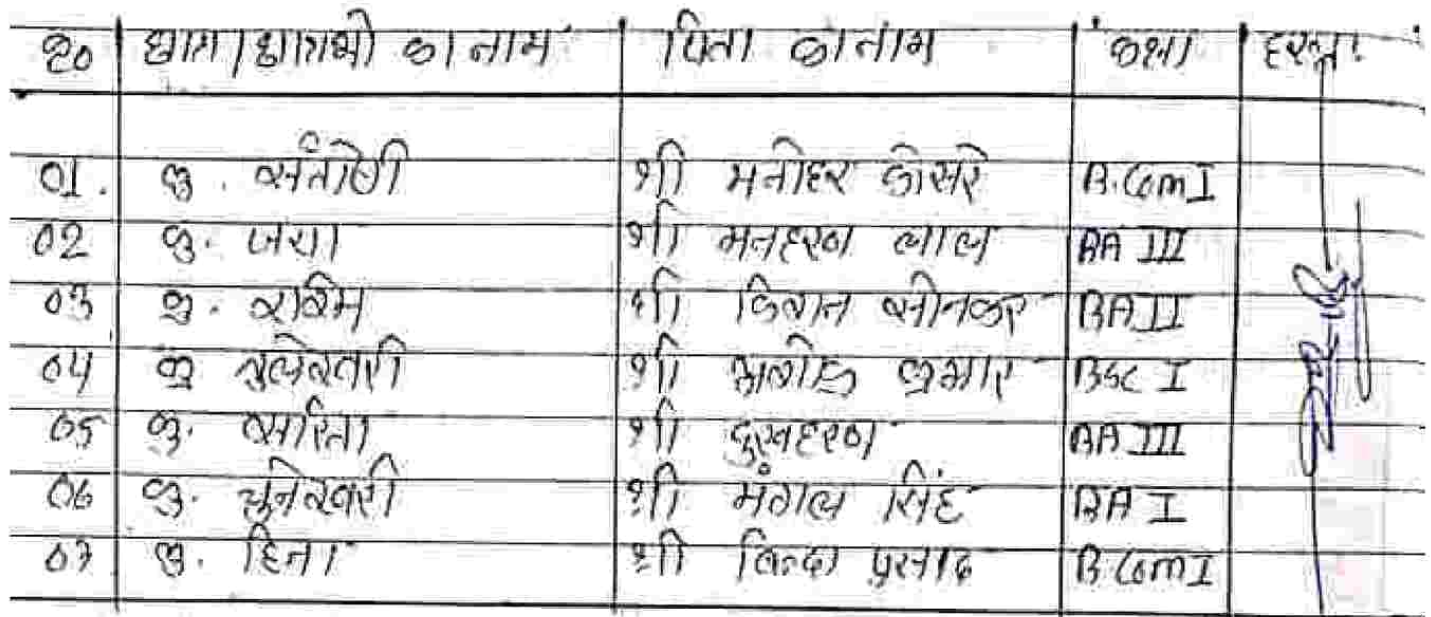 क्र० छात्र/छात्राओं का नाम पिता का नाम कक्षा हस्ता.
01. कु. संतोषी श्री मनोहर कोसरे B.Com I
02 कु. जया श्री मनहरण लाल BA III
03 कु. रश्मि श्री किशन सोनकर BA II
04 कु तुलेश्वरी श्री अशोक कुमार BSC I
05 कु. सरिता श्री दुखहरण BA III
06 कु. चुनेश्वरी श्री मंगल सिंह BA I
07 कु. हिना श्री बिन्दा प्रसाद B Com I